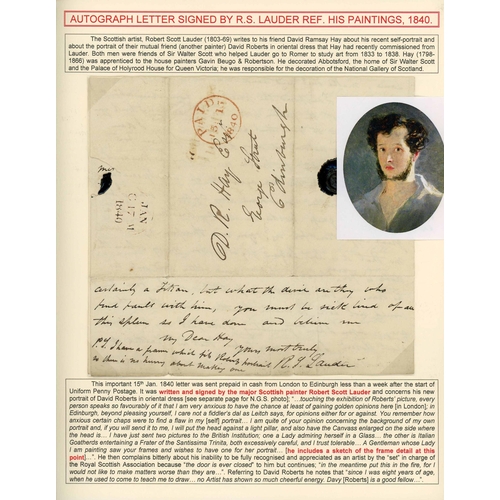 AUTOGRAPH LETTER SIGNED BY R.S. LAUDER REF. HIS PAINTINGS, 1840.
The Scottish artist, Robert Scott Lauder (1803-69) writes to his friend David Ramsay Hay about his recent self-portrait and
about the portrait of their mutual friend (another painter) David Roberts in oriental dress that Hay had recently commissioned from
Lauder. Both men were friends of Sir Walter Scott who helped Lauder go to Rome to study art from 1833 to 1838. Hay (1798-
1866) was apprenticed to the house painters Gavin Beugo & Robertson. He decorated Abbotsford, the home of Sir Walter Scott
and the Palace of Holyrood House for Queen Victoria; he was responsible for the decoration of the National Gallery of Scotland.
PAID
15 JA 15
1840
D. R. Hay Esqr
George Street
Edinburgh
JAN
C 17 M
1840
certainly a Titian, but what the devil are they who
find fault with him, you must be sick kind of an
this spleen so I have done and believe me
My Dear Hay
yours most truly
R. S. Lauder
P.S. I have a frame which fits Roberts portrait
so there is no hurry about making one
This important 15th Jan. 1840 letter was sent prepaid in cash from London to Edinburgh less than a week after the start of
Uniform Penny Postage. It was written and signed by the major Scottish painter Robert Scott Lauder and concerns his new
portrait of David Roberts in oriental dress [see separate page for N.G.S. photo]; "...touching the exhibition of Roberts' picture, every
person speaks so favourably of it that I am very anxious to have the chance at least of gaining golden opinions here [in London]; in
Edinburgh, beyond pleasing yourself, I care not a fiddler's dal as Leitch says, for opinions either for or against. You remember how
anxious certain chaps were to find a flaw in my [self] portrait... I am quite of your opinion concerning the background of my own
portrait and, if you will send it to me, I will put the head against a light pillar, and also have the Canvass enlarged on the side where
the head is... I have just sent two pictures to the British Institution; one a Lady admiring herself in a Glass... the other is Italian
Goatherds entertaining a Frater of the Santissima Trinita, both excessively careful, and I trust tolerable... A Gentleman whose Lady
I am painting saw your frames and wishes to have one for her portrait... [he includes a sketch of the frame detail at this
point]...". He then complains bitterly about his inability to be fully recognised and appreciated as an artist by the "set" in charge of
the Royal Scottish Association because "the door is ever closed" to him but continues; "in the meantime put this in the fire, for I
would not like to make matters worse than they are...". Referring to David Roberts he notes that "since I was eight years of age,
when he used to come to teach me to draw... no Artist has shown so much cheerful energy. Davy [Roberts] is a good fellow...".